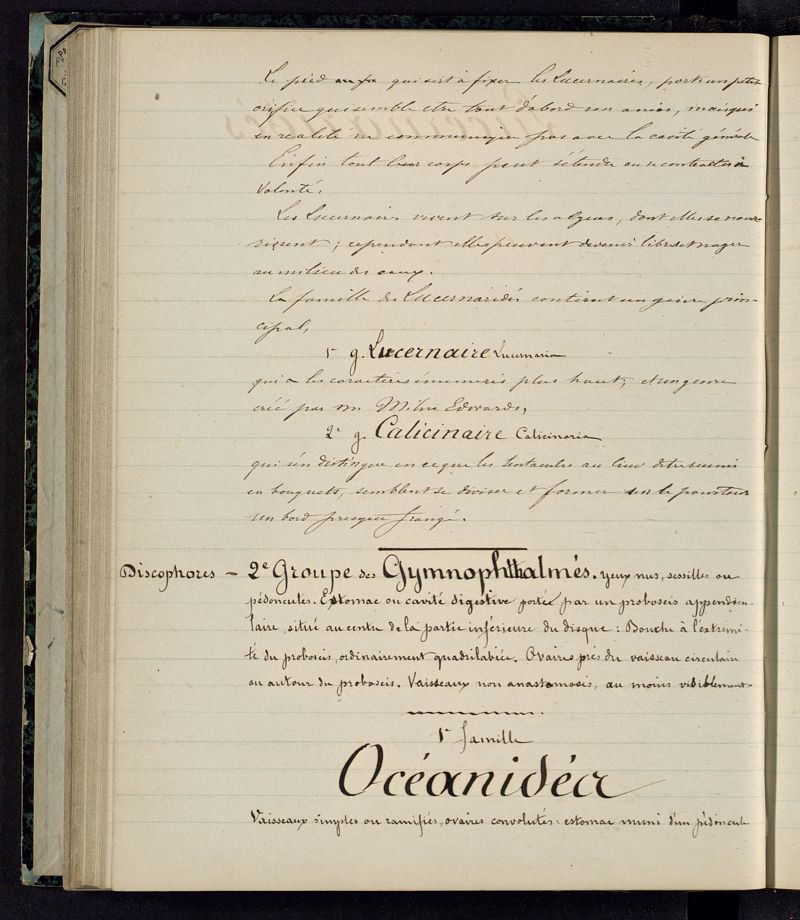 Le pied qui sert à fixer les Lucernaires, porte un petit
orifice qui semble etre tout d'abord un anus, mais qui
en realité ne communique pas avec la cavité générale
Enfin tout leur corps peut s'étendre ou se contracter à
volonté.
Les Lucernaires vivent sur les algues, dont elles se nour-
rissent ; cependant elles peuvent devenir libres et nager
au milieu des eaux.
La famille des Lucernaridés contient un genre prin-
cipal,
1r g. Lucernaire Lucernaria
qui a les caractères énumérés plus haut ; et un genre
créé par m Milne Edwards,
2e g. Calicinaire Calicinaria
qui s'en distingue en ce que les tentacules au lieu d'etre reunis
en bouquets, semblent se diviser et former sur le pourtour
un bord presque frangé.
Discophores — 2e Groupe des Gymnophthalmés. Yeux nus, sessilles ou
pédonculés. Estomac ou cavité digestive portée par un proboscis appendicu-
laire, situé au centre de la partie inférieure du disque : Bouche à l'extremi-
té du proboscis, ordinairement quadrilabiée. Ovaires près du vaisseau circulaire
ou autour du proboscis. Vaisseaux non anastomosés, au moins visiblement.
1r famille
Océanidéa
Vaisseaux simples ou ramifiés, ovaires convolutés : estomac muni d'un pédoncule